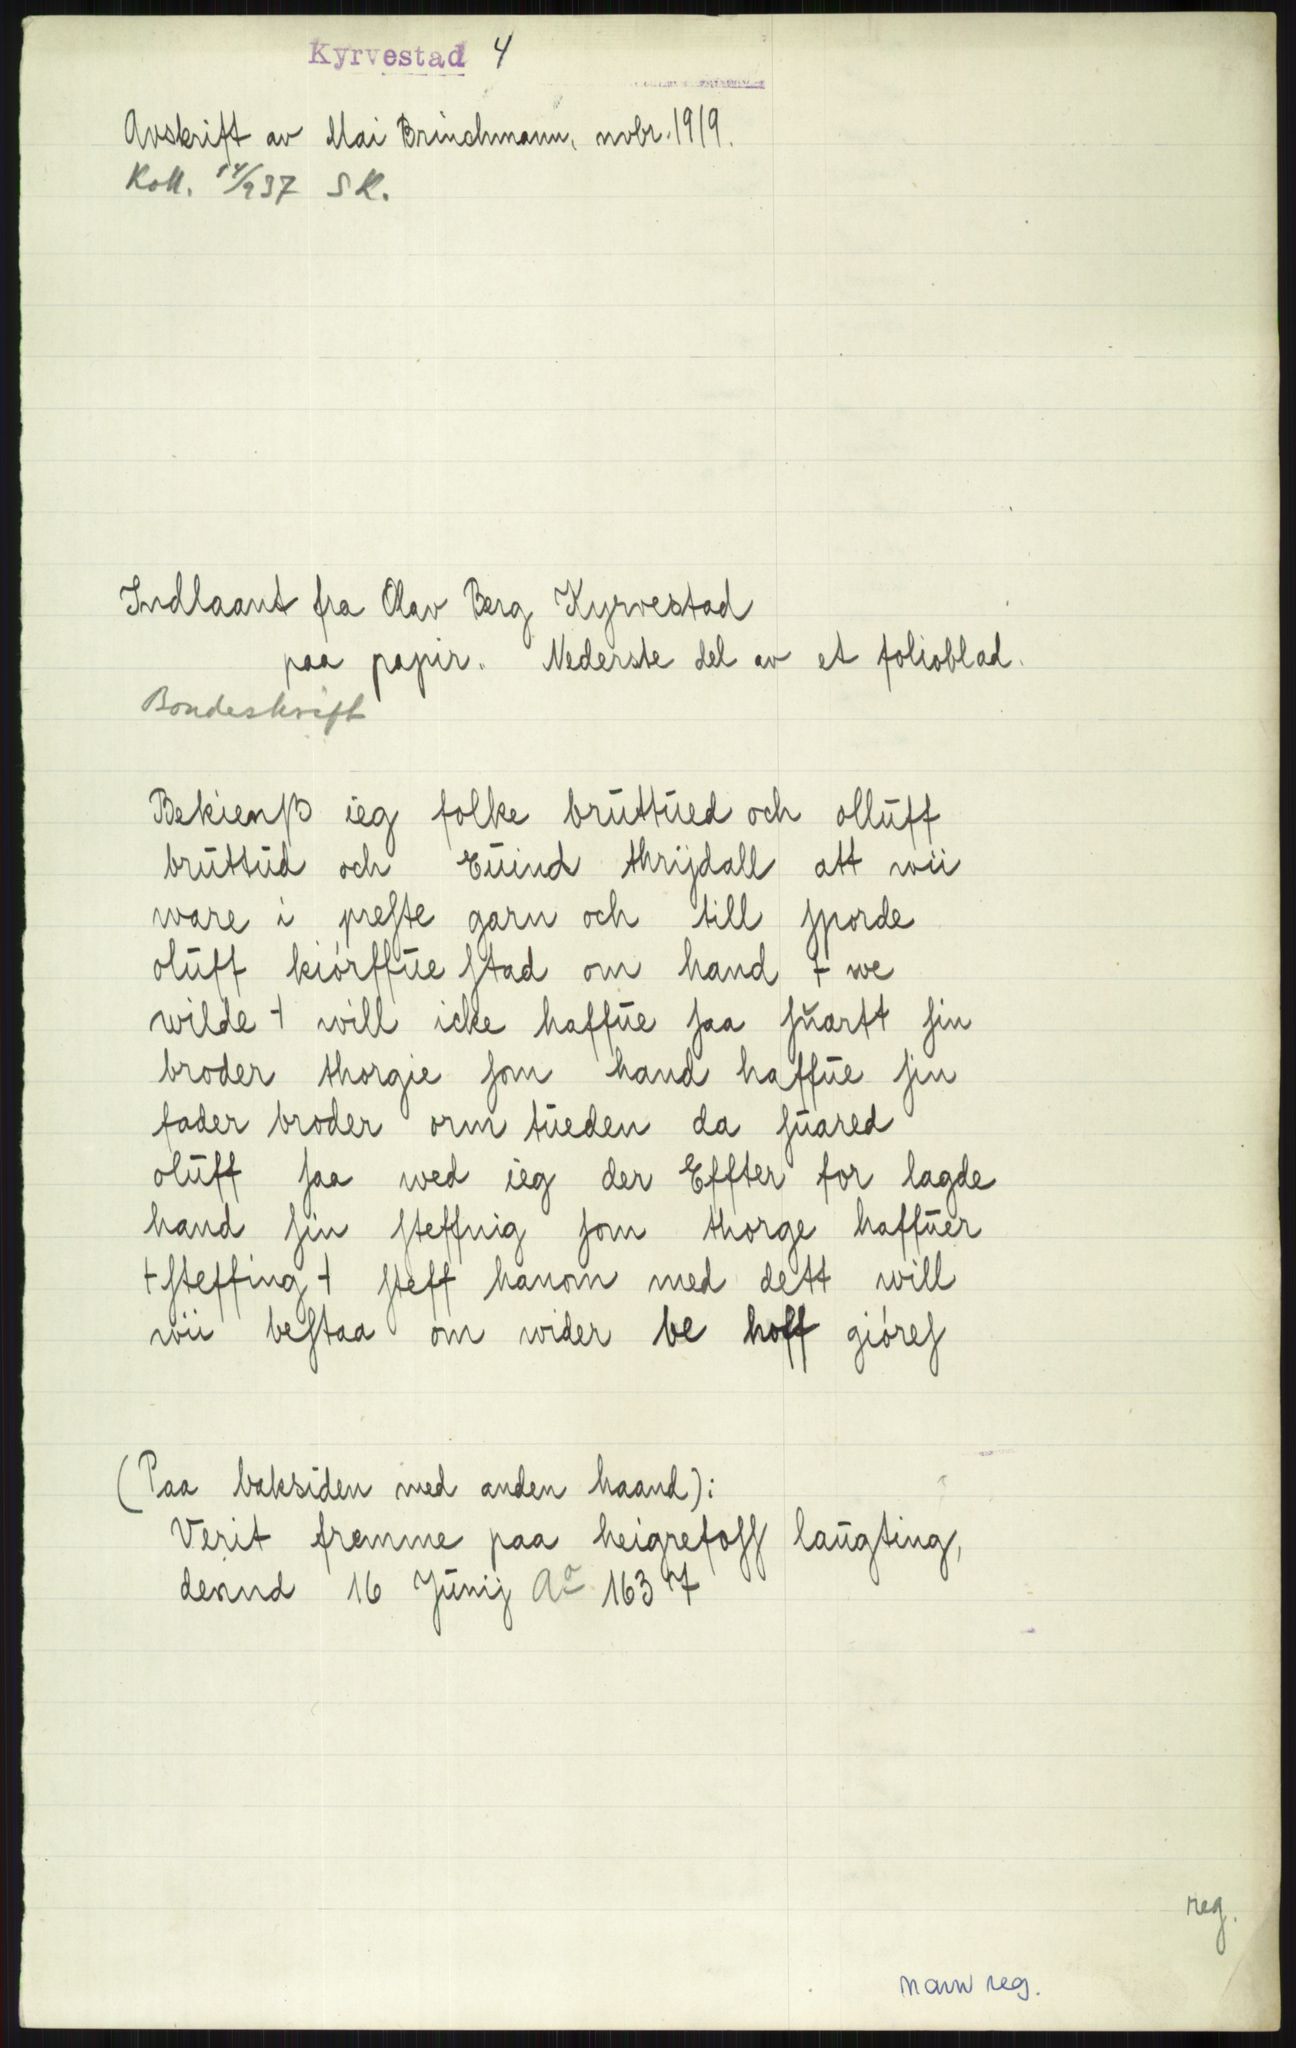 Kyrvestad 4
Avskrift av Mai Brinchmann, nvbr. 1919.
Koll. 14/9 37 S K.
Indlaant fra Olav Berg Kyrvestad
paa papir. Nederste del av et folioblad.
Bondeskrift
Bekienß ieg folke bruttued och olluff
bruttud och Euind thrijdall att wii
ware i prefte garn och till sporde
oluff kiórffue stad om hand + we
wilde + will icke haffue saa suartt sin
broder thorgie som hand haffue sin
fader broder orm tueden da suared
oluff saa wed ieg der Effter for lagde
hand sin steffnig som thorge haffuer
+ steffing + steff hanom med dett will
wii bestaa om wider be hoff gióres
(Paa baksiden med anden haand):
Verit fremme paa heigrefoss laugting,
dennd 16 Junij Ao 1637
reg.
navnreg.